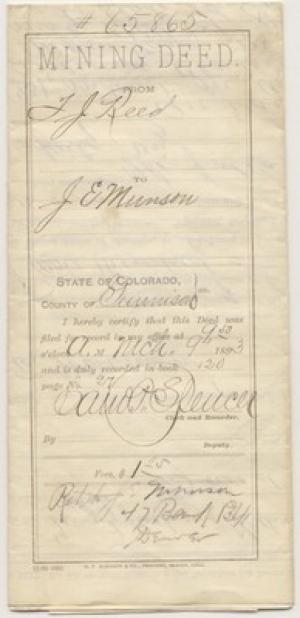 # 65865
MINING DEED.
FROM
F. J. Reed
TO
J E Munson
STATE OF COLORADO,
COUNTY OF Gunnison ss.
I hereby certify that this Deed was
filed for record in my office at 9 50
o'clock A. M. Mch. 9th 1893
and is duly recorded in book 120
page No. 27
Spencer
Clerk and Recorder.
By
Deputy.
Fees, $ 1 25
Munson
47 Bank Blk
Denver